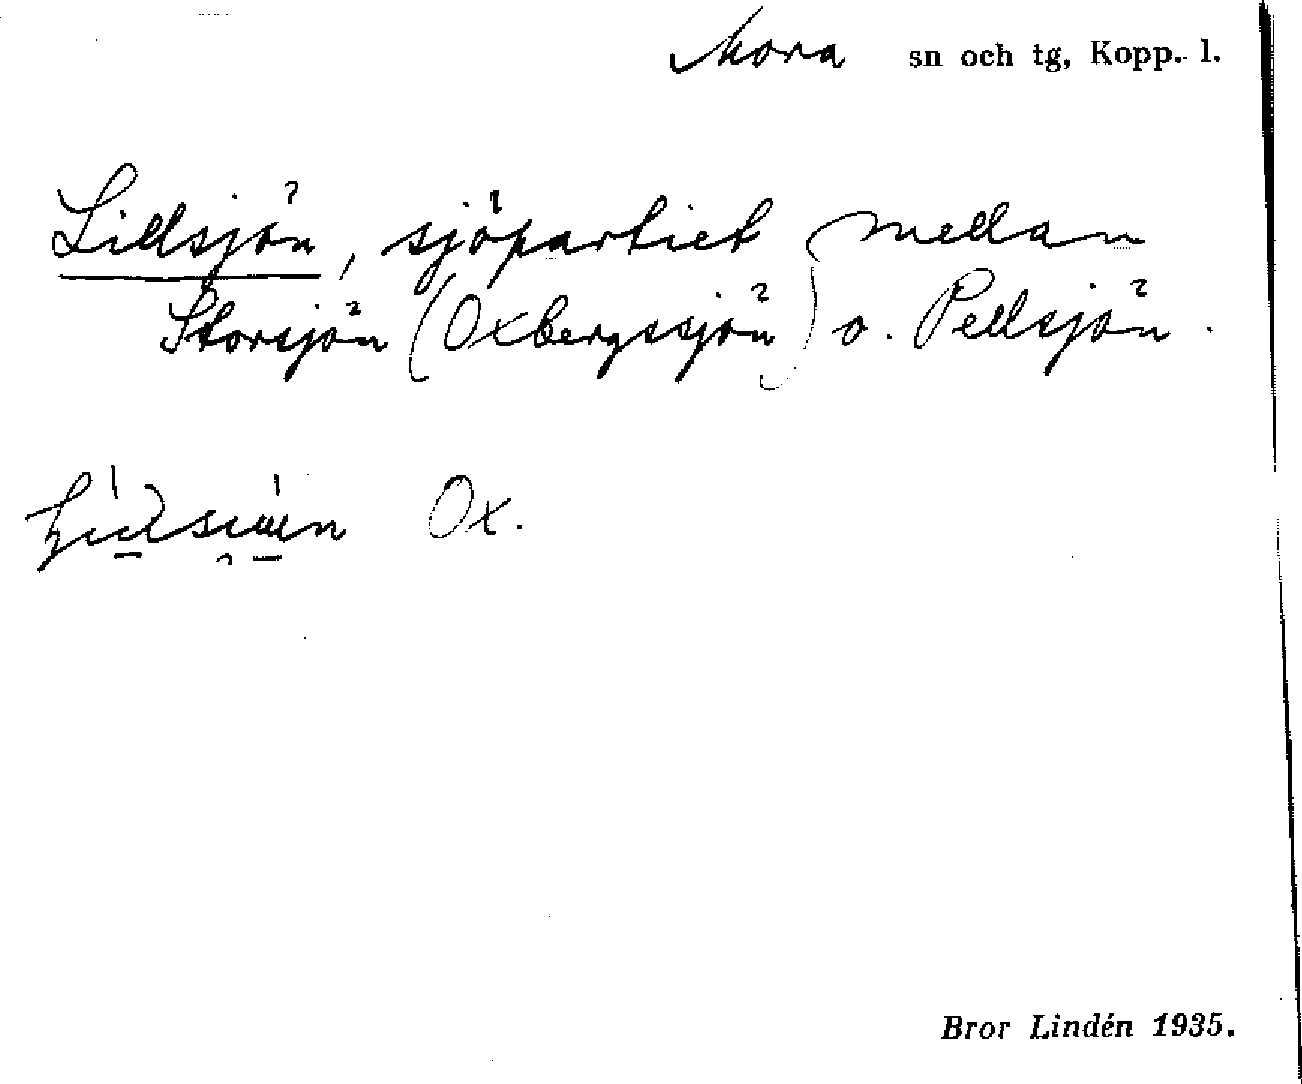 Mora sn och tg, Kopp. l.
Lillsjön, sjöpartiet mellan
Storsjön (Oxbergssjön) o. Pellsjön.
Ox.
Bror Lindén 1935.